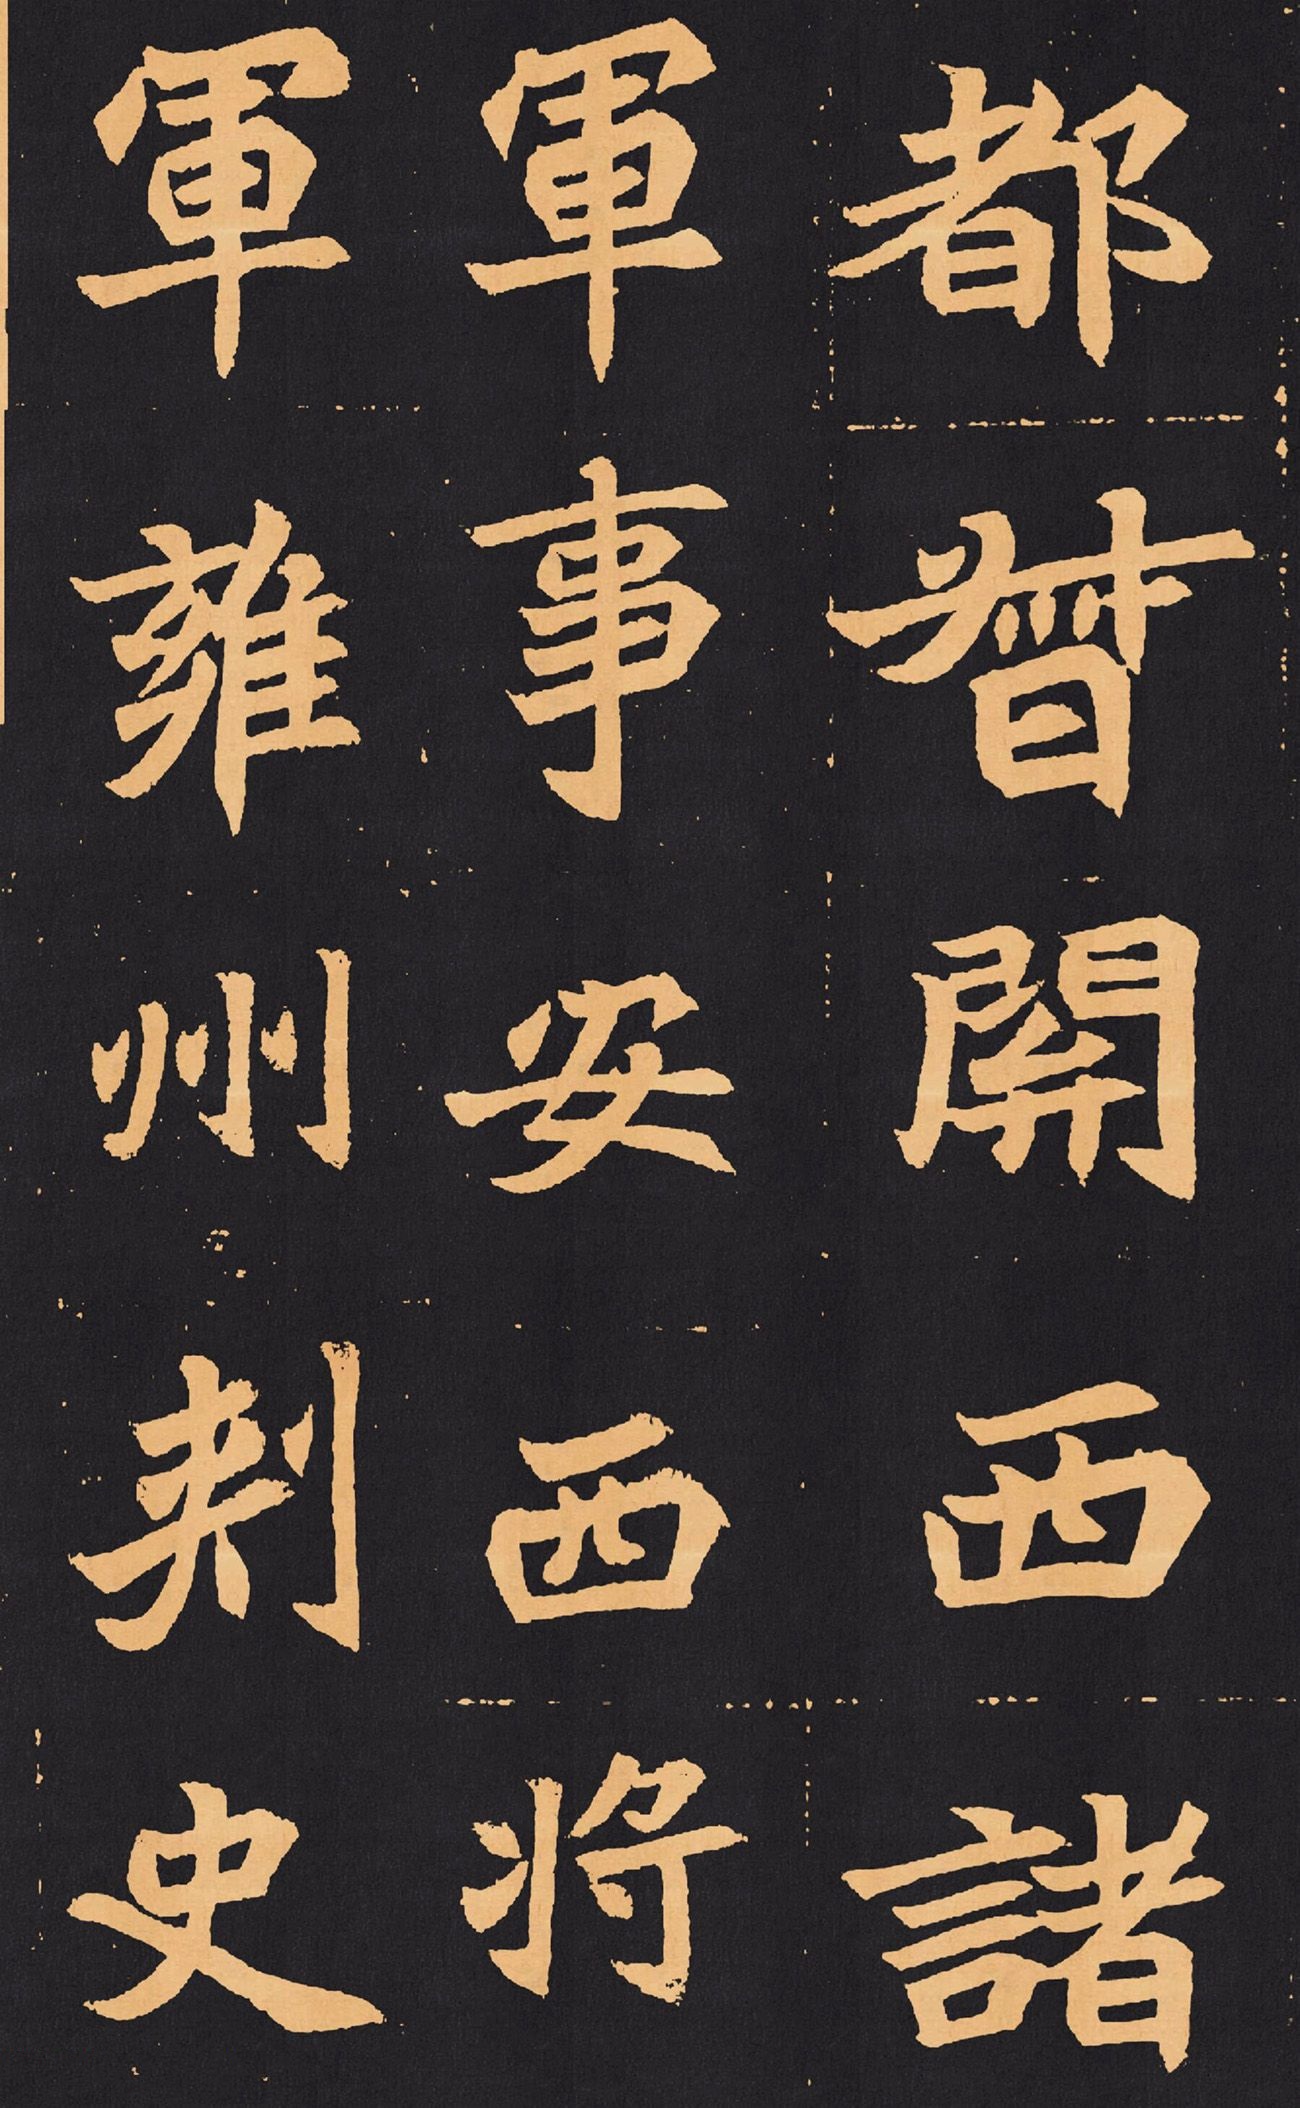 都督關西諸
軍事安西將
軍雍州刺史